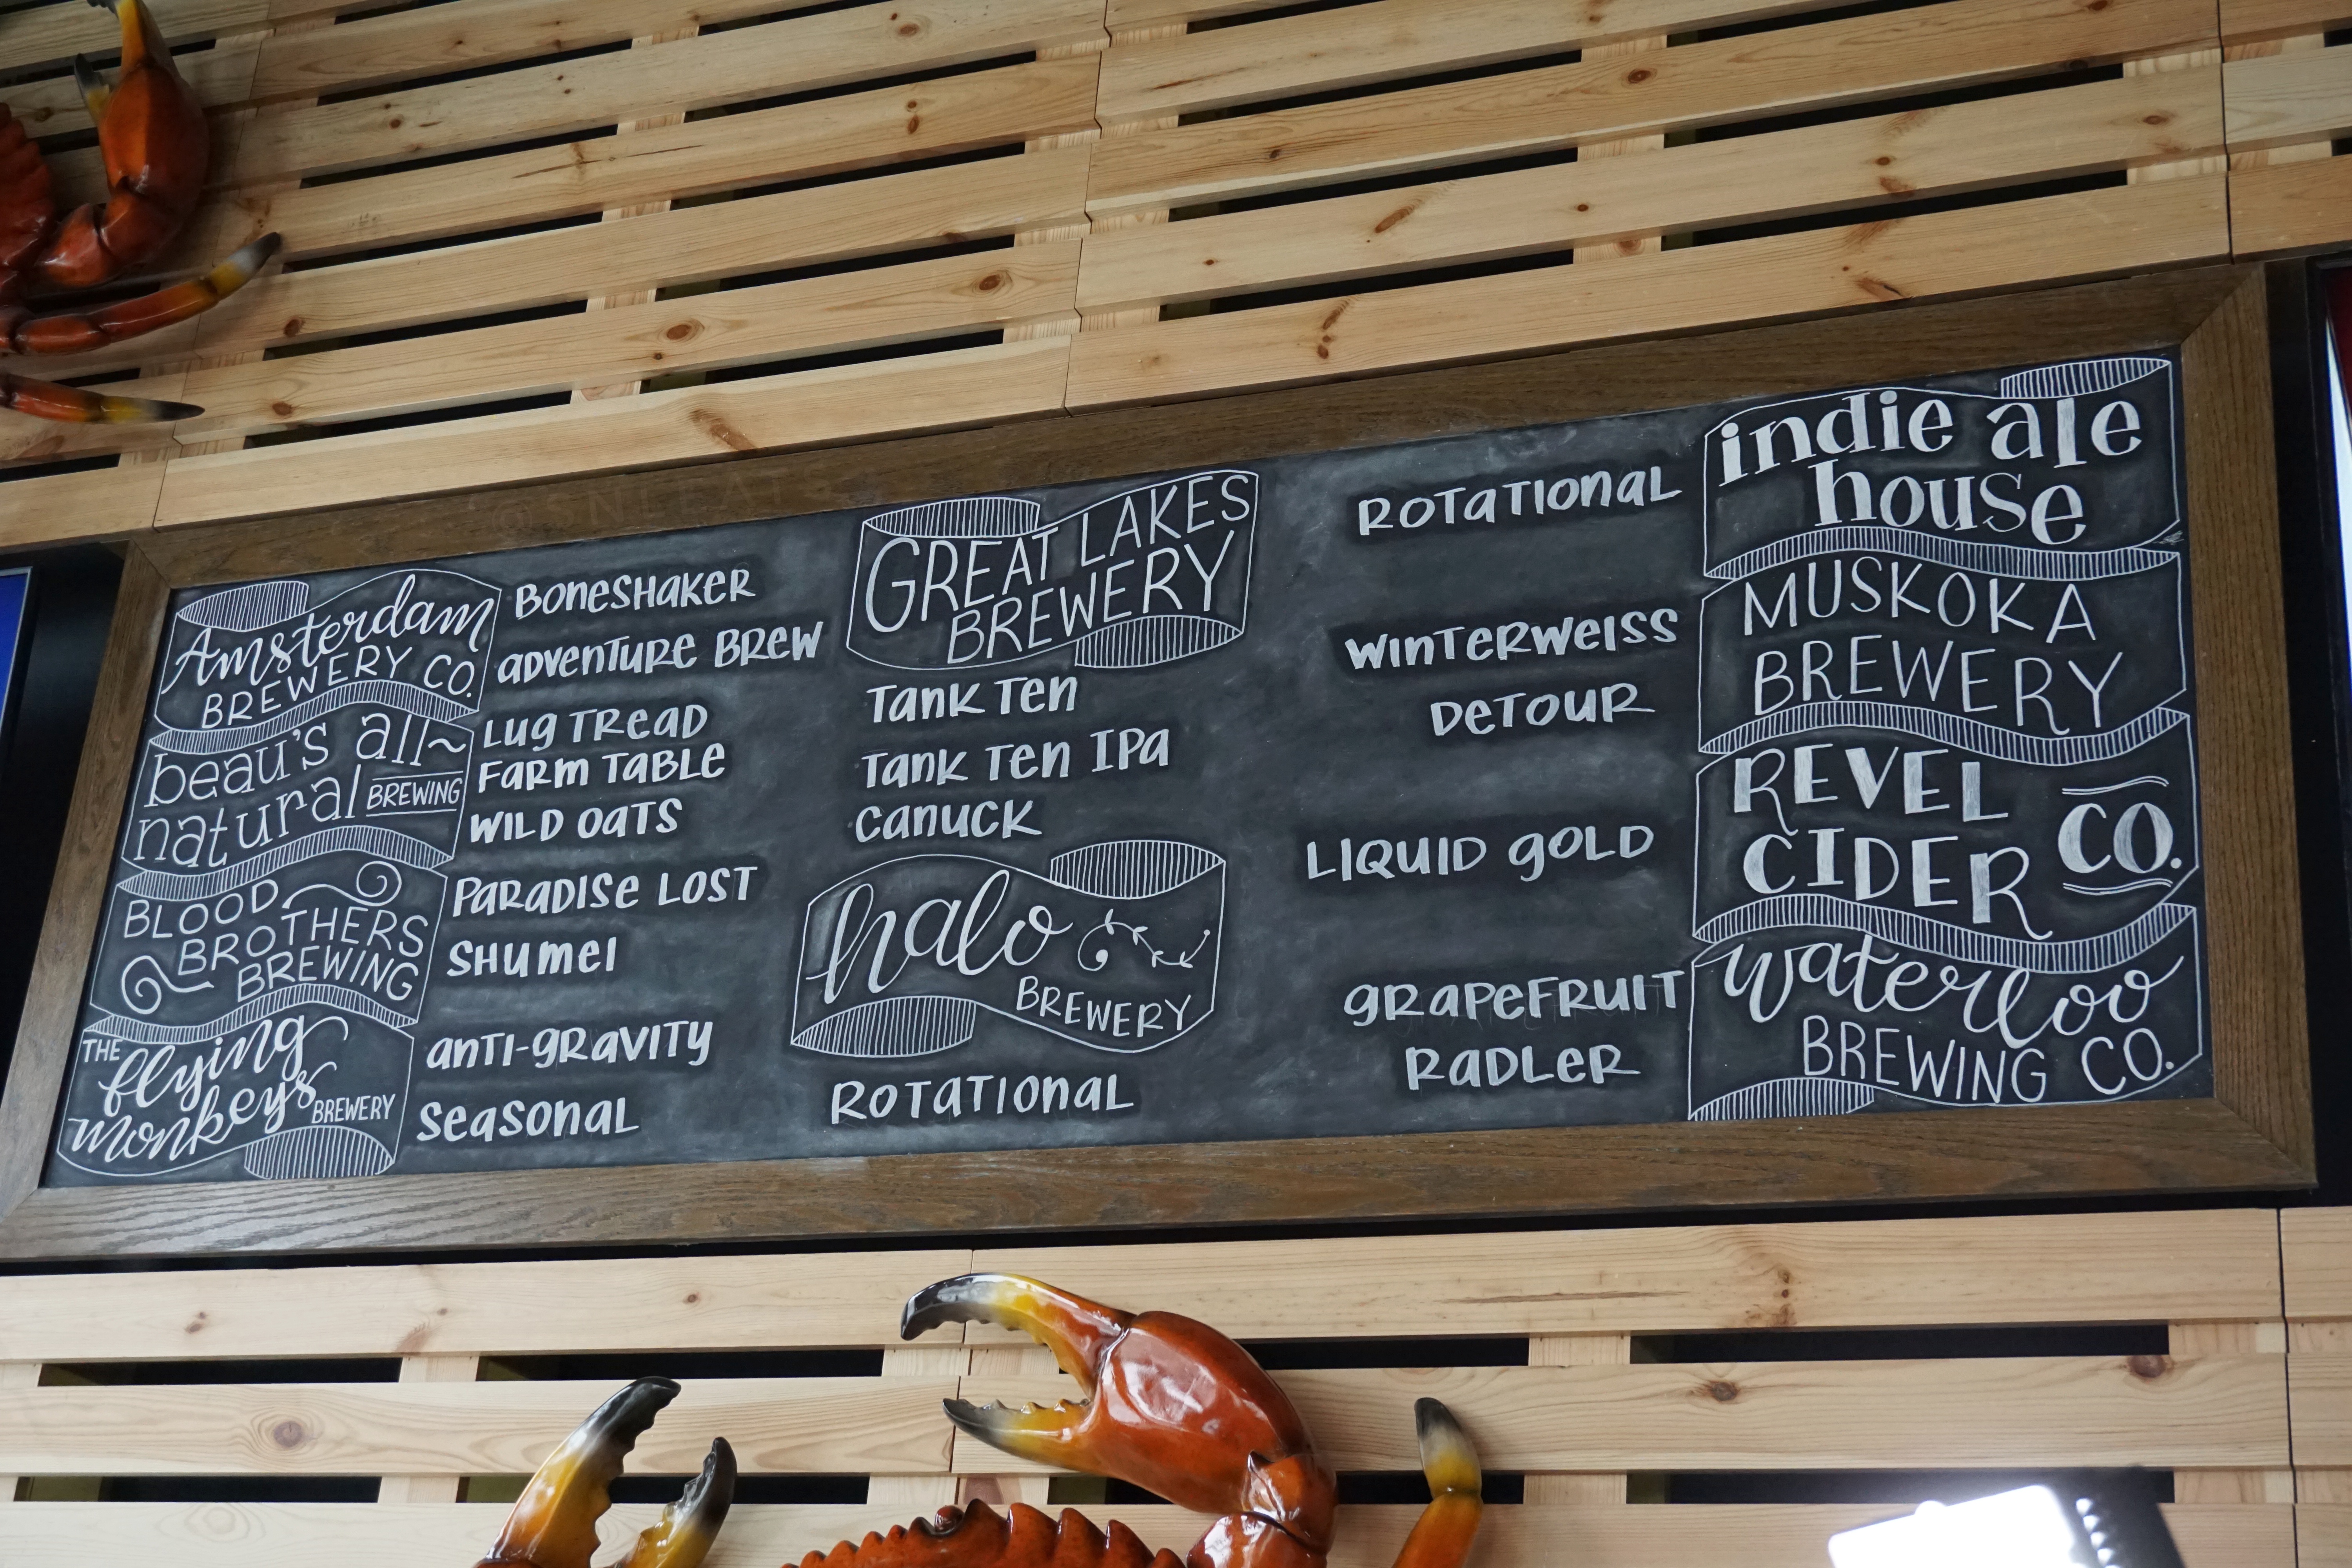 Amsterdam
BREWERY CO.
BONESHAKER
ADVENTURE BREW
beau's all~
natural BREWING
LUG TREAD
FARM TABLE
WILD OATS
BLOOD
BROTHERS
BREWING
PARADISE LOST
SHUMEI
THE flying
monkeys BREWERY
ANTI-GRAVITY
SEASONAL
GREAT LAKES
BREWERY
TANK TEN
TANK TEN IPA
CANUCK
halo
BREWERY
ROTATIONAL
ROTATIONAL
indie ale
house
WINTERWEISS
DETOUR
MUSKOKA
BREWERY
LIQUID GOLD
REVEL
CIDER CO.
GRAPEFRUIT
RADLER
waterloo
BREWING CO.